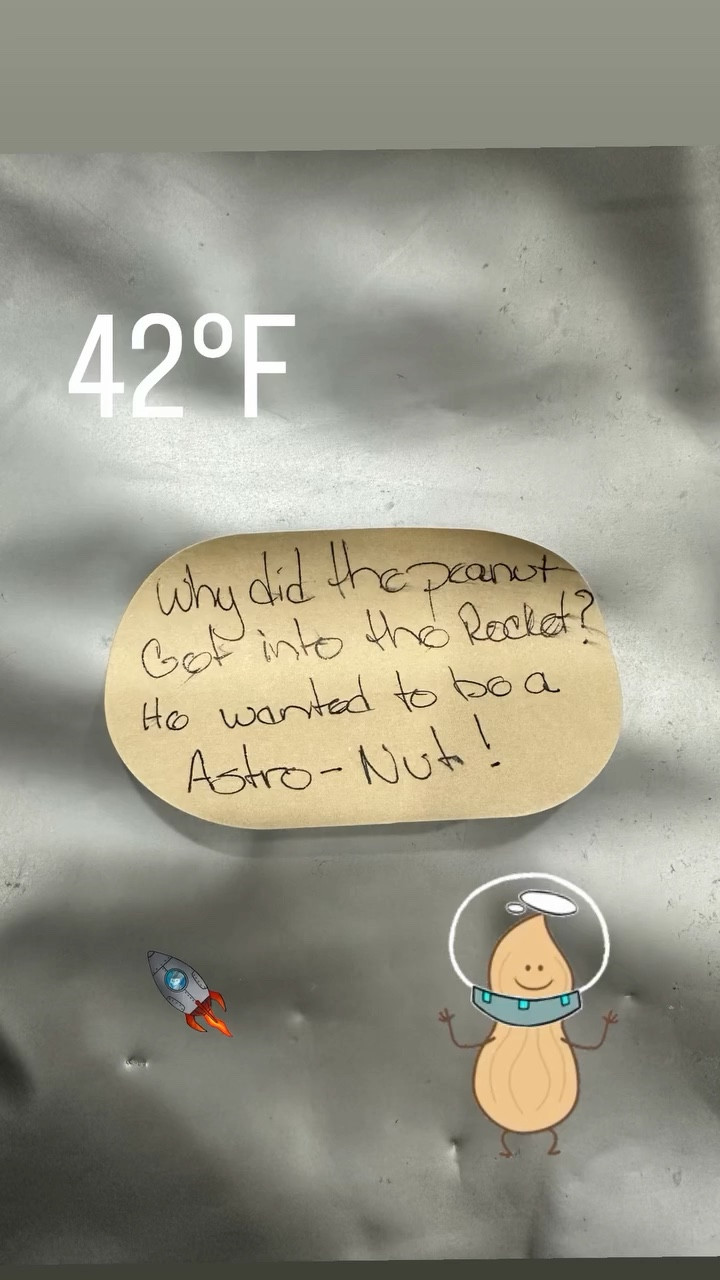 42°F
Why did the peanut
Get into the Rocket?
He wanted to be a
Astro-Nut!